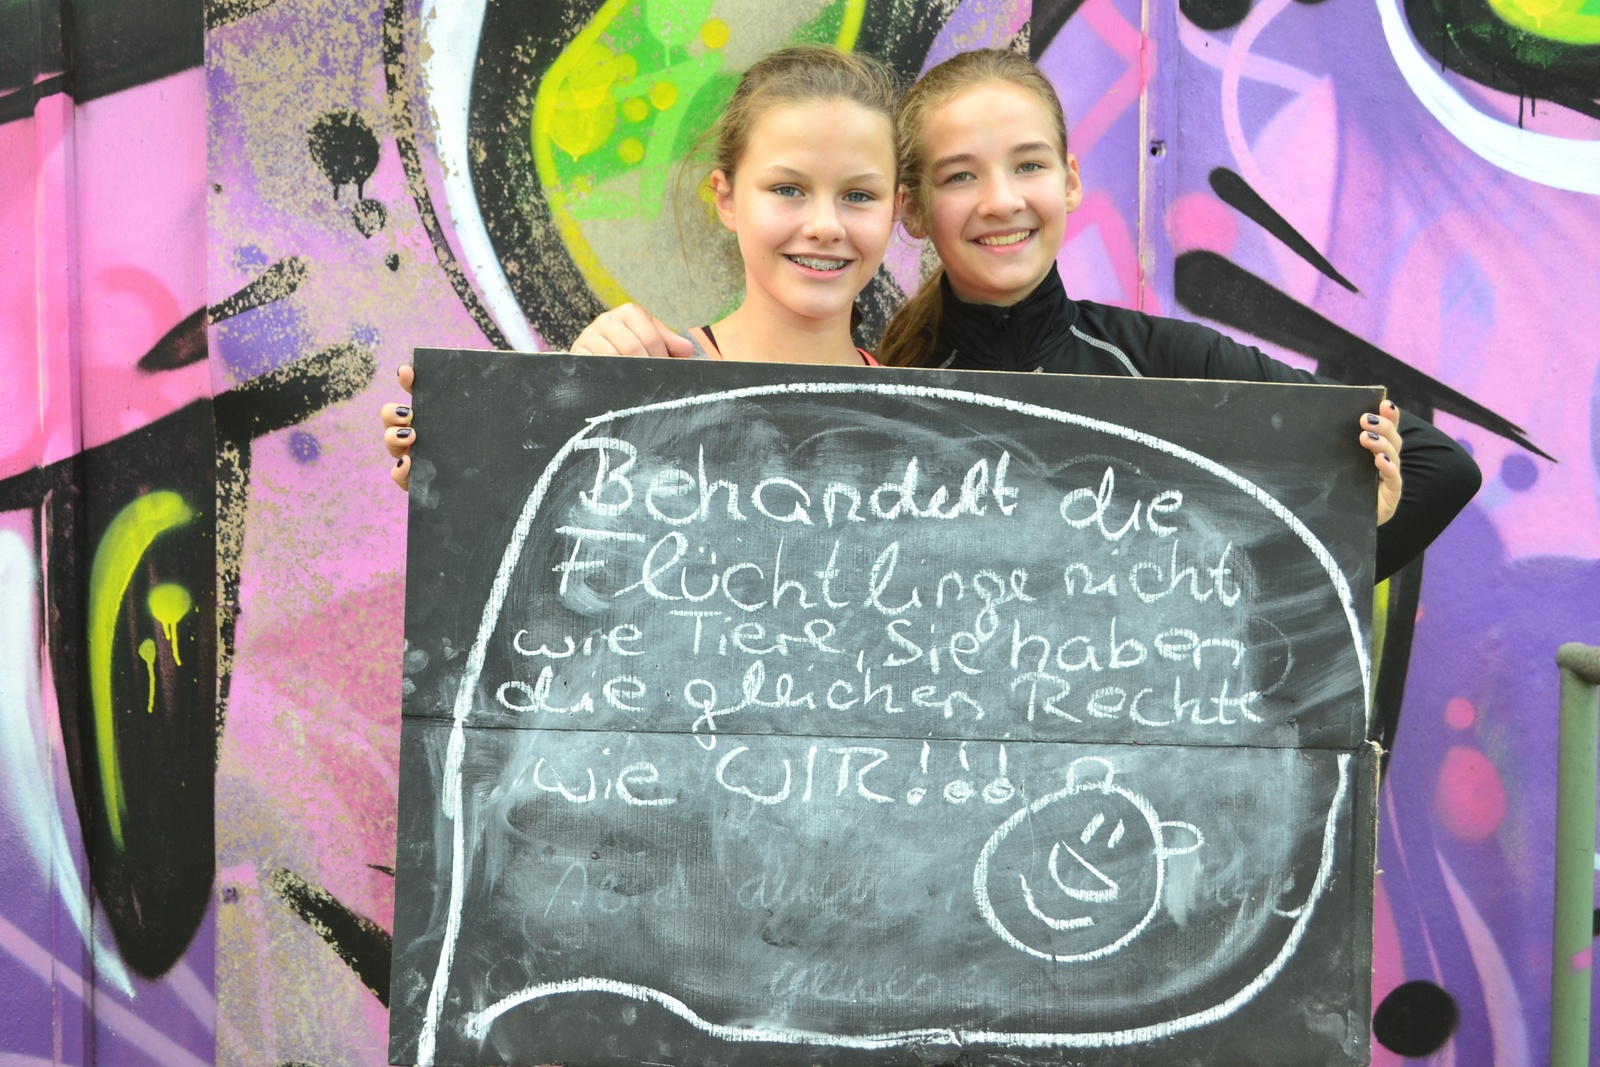 Behandelt die
Flüchtlinge nicht
wie Tiere, Sie haben
die gleichen Rechte
wie WIR!!!